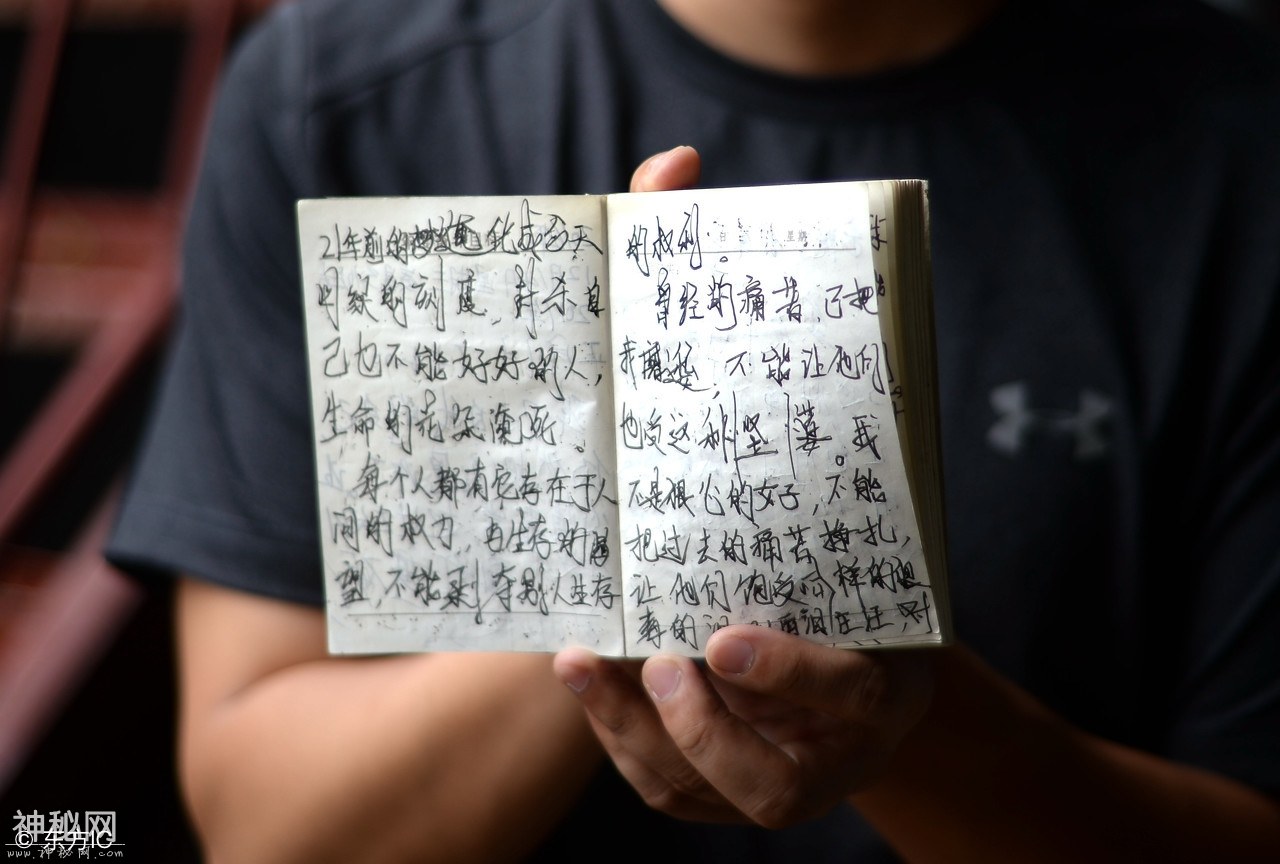 21年前的 化成今天
时候的刻度,封杀自
己也不能好好的人,
生命的花朵 死。
每个人都有它存在于人
间的权力,由生存的渴
望,不能剥夺别人生存
的权利。
曾经的痛苦,已把
我 ,不能让他们
也受这种 。我
不是狠心的女子,不能
把过去的痛苦挣扎,
让他们饱受同样的
的泪 泪汪汪,对
神秘网
© 东方IC
www.神秘网.com